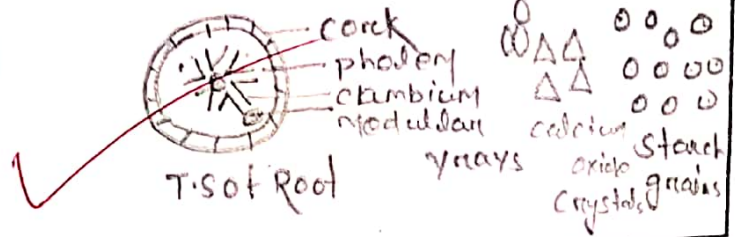 cork
pholem
cambium
modullar
yrays
T.S of Root
calcium
oxide
Crystals
Starch
grains